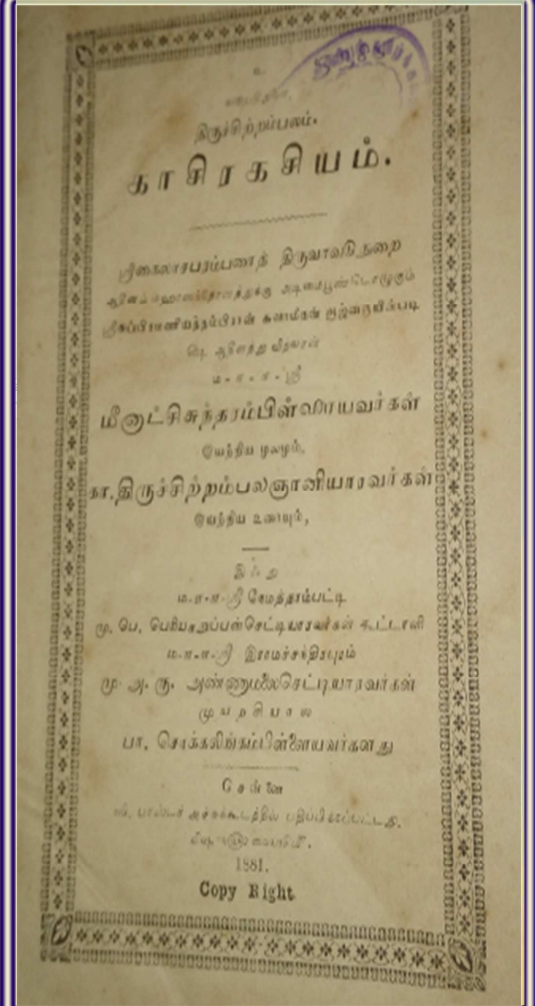 உ
திருச்சிற்றம்பலம்.
காசிரகசியம்.
ஸ்ரீகைலாசபரம்பரைத் திருவாவடுதுறை
அடிமைபூண்டொழுகும்
ஸ்ரீசுப்பிரமணியத்தம்பிரான் சுவாமிகள்
ஷெ ஆதீனத்து வித்வான்
ம-௱-௱-ஸ்ரீ
மீனாட்சிசுந்தரம்பிள்ளையவர்கள்
இயற்றிய மூலமும்,
கா.திருச்சிற்றம்பலஞானியாரவர்கள்
இயற்றிய உரையும்,
இஃது
ம-௱-௱-ஸ்ரீ
மு. பெ. பெரியகறுப்பன்செட்டியாரவர்கள் கூட்டாளி
ம-௱-௱-ஸ்ரீ இராமச்சந்திரபுரம்
மு. அ. ரு. அண்ணாமலைசெட்டியாரவர்கள்
முயற்சியால்
பா, சொக்கலிங்கம்பிள்ளையவர்களது
சென்னை
அச்சுக்கூடத்தில் பதிப்பிக்கப்பட்டது.
1881.
Copy Right